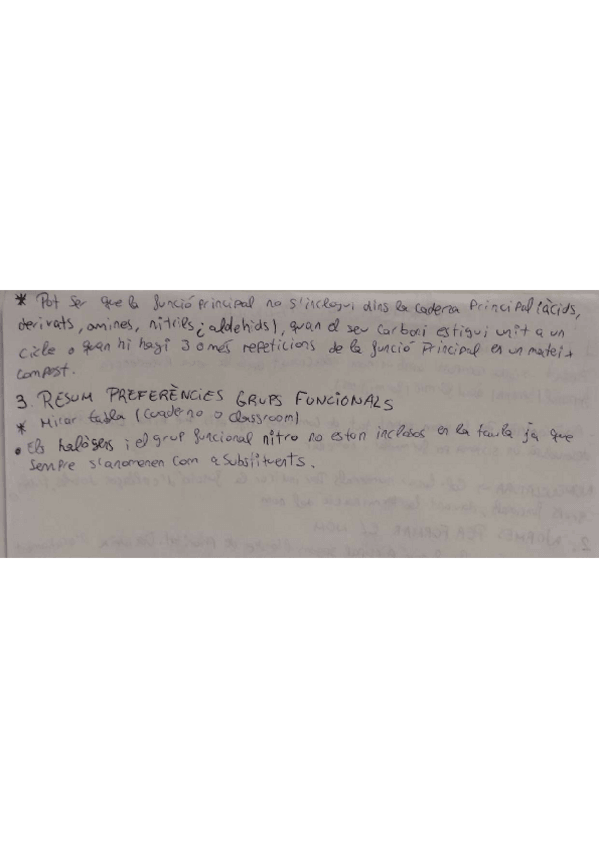 * Pot ser que la funció principal no s'inclogui dins la cadena principal (àcids,
derivats, amines, nitrils i aldehids), quan el seu carboni estigui unit a un
cicle o quan hi hagi 3 o més repeticions de la funció principal en un mateix
compost.
3. RESUM PREFERÈNCIES GRUPS FUNCIONALS
* Mirar tabla (cuaderno o classroom)
• Els halògens i el grup funcional nitro no estan inclosos en la taula ja que
sempre s'anomenen com a substituents.